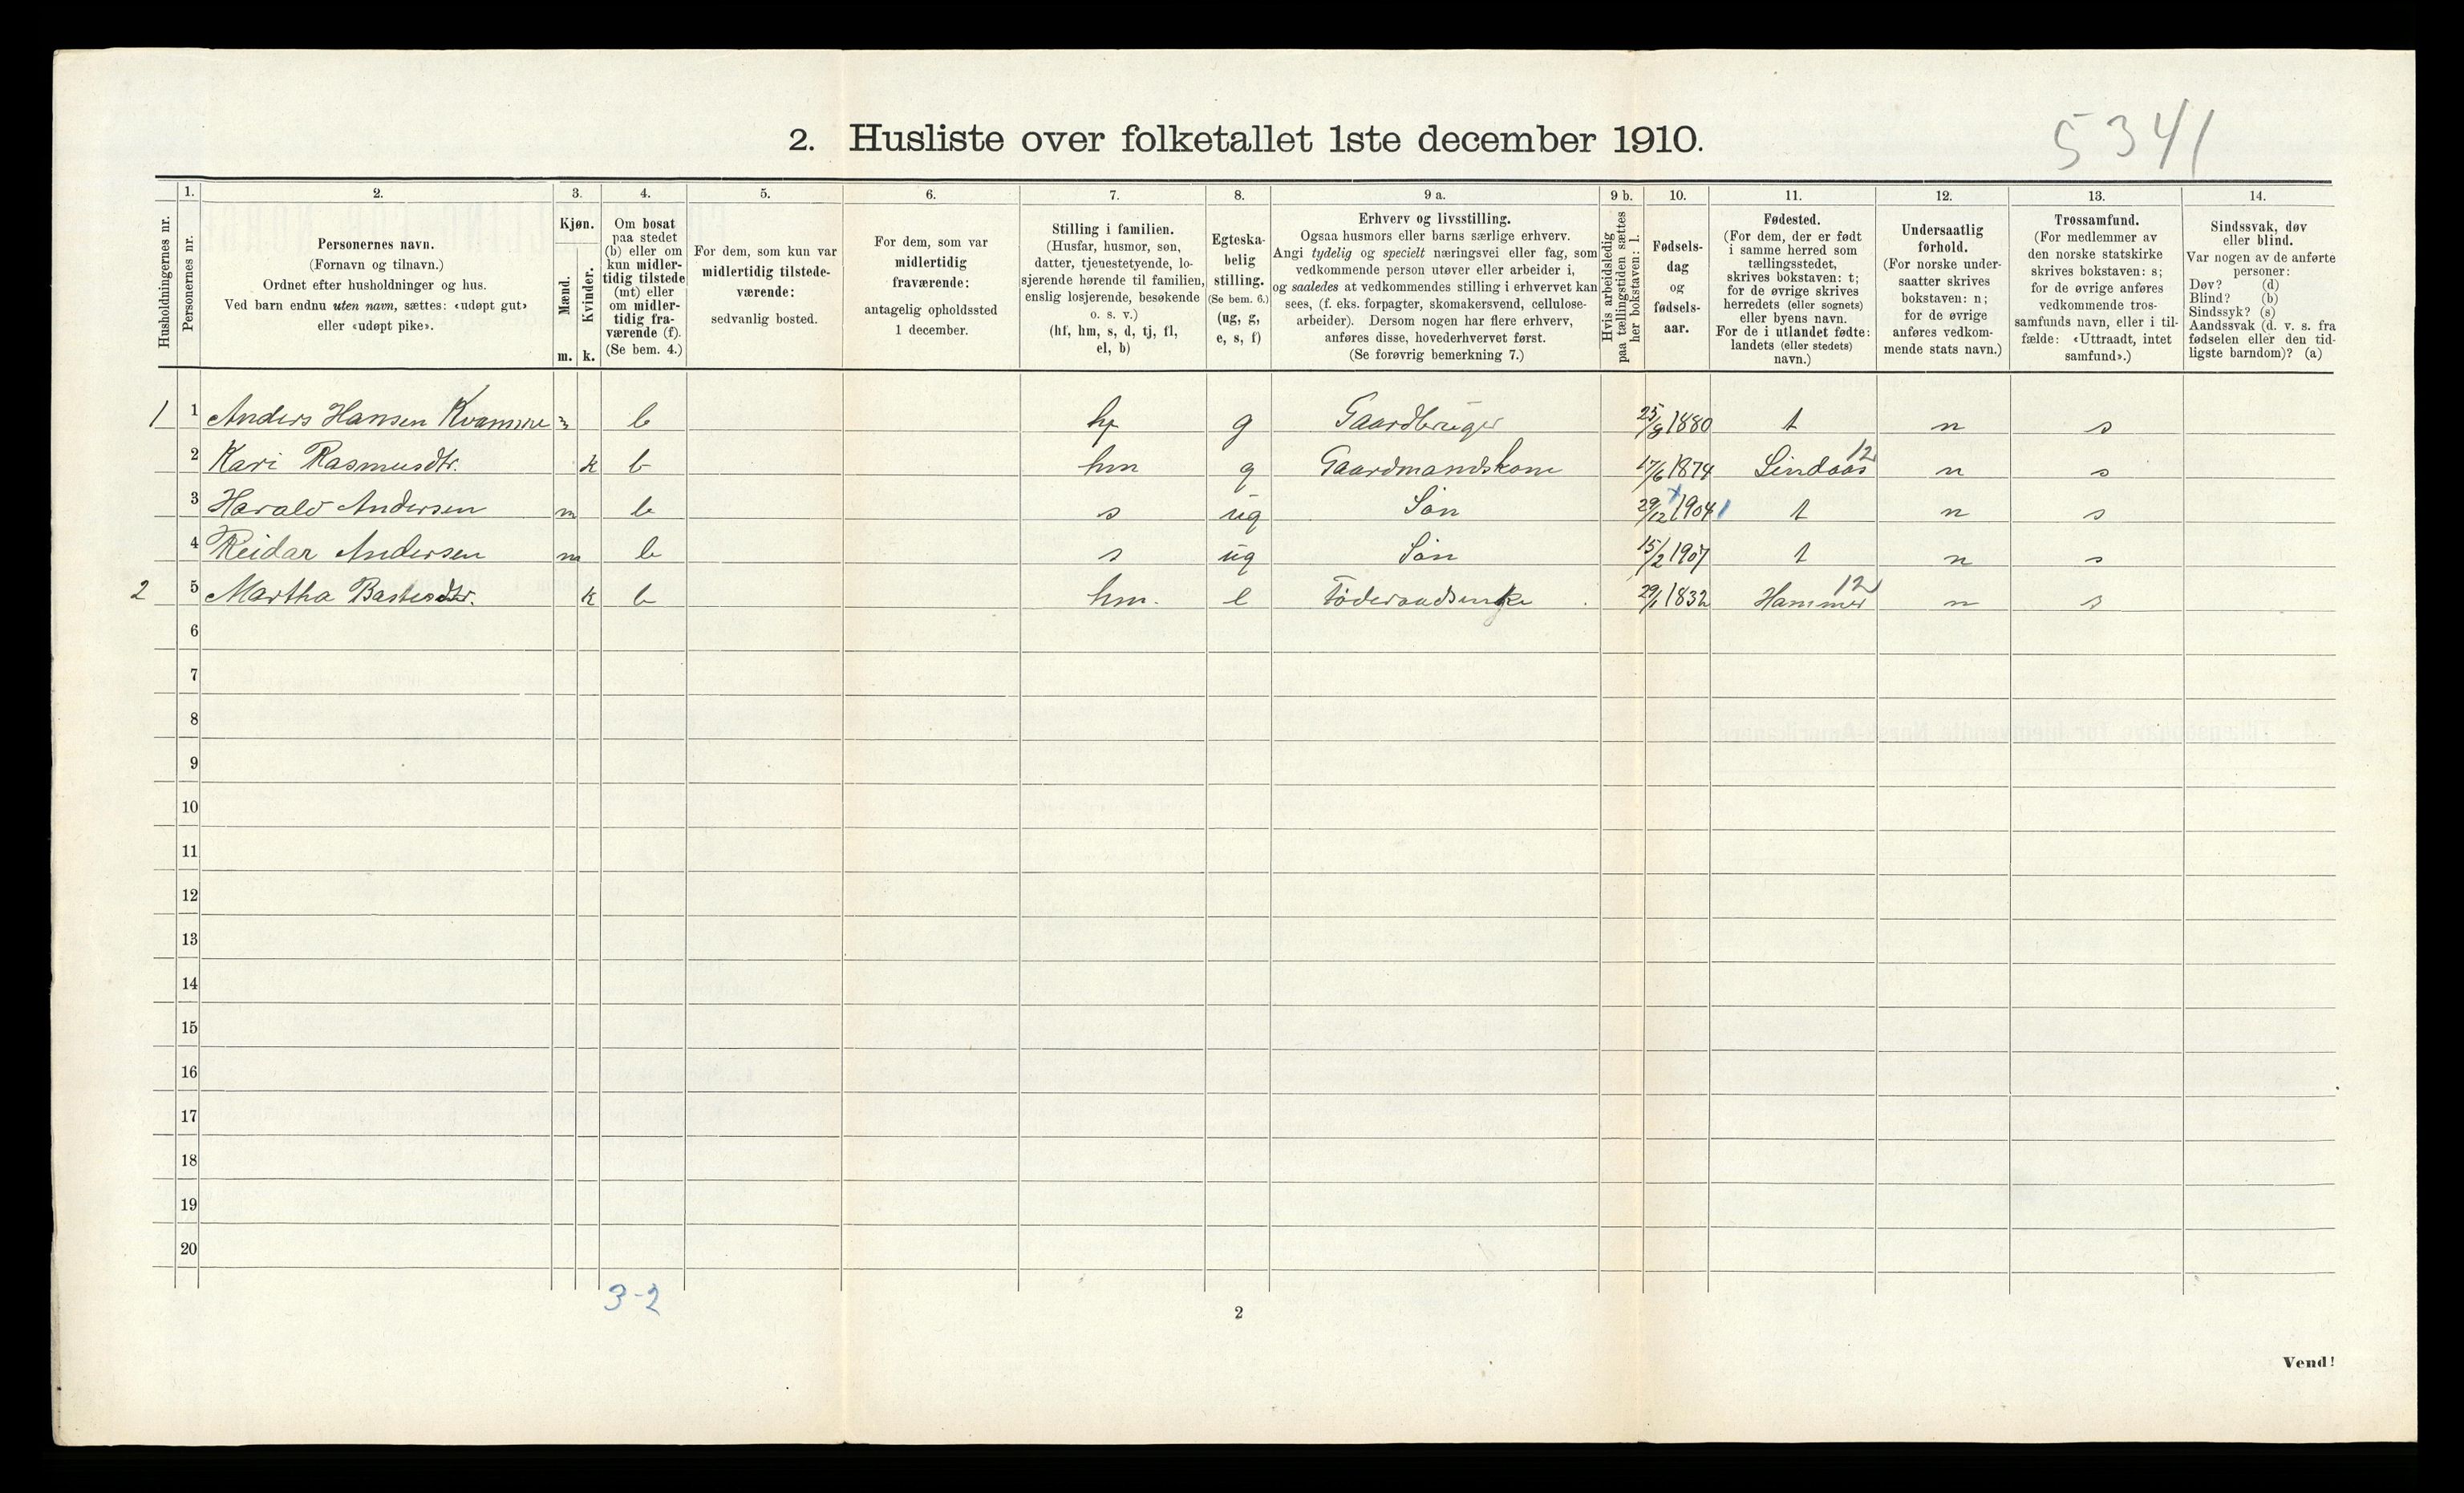 5341
2. Husliste over folketallet 1ste december 1910.
1. 2. 3. 4. 5. 6. 7. 8. 9 a. 9 b. 10. 11. 12. 13. 14.
Husholdningernes nr.
Personernes nr.
Personernes navn.
(Fornavn og tilnavn.)
Ordnet efter husholdninger og hus.
Ved barn endnu uten navn, sættes: «udøpt gut»
eller «udøpt pike».
Kjøn.
Mænd.
Kvinder.
m. k.
Om bosat
paa stedet
(b) eller om
kun midler-
tidig tilstede
(mt) eller
om midler-
tidig fra-
værende (f).
(Se bem. 4.)
For dem, som kun var
midlertidig tilstede-
værende:
sedvanlig bosted.
For dem, som var
midlertidig
fraværende:
antagelig opholdssted
1 december.
Stilling i familien.
(Husfar, husmor, søn,
datter, tjenestetyende, lo-
sjerende hørende til familien,
enslig losjerende, besøkende
o. s. v.)
(hf, hm, s, d, tj, fl,
el, b)
Egteska-
belig
stilling.
(Se bem. 6.)
(ug, g,
e, s, f)
Erhverv og livsstilling.
Ogsaa husmors eller barns særlige erhverv.
Angi tydelig og specielt næringsvei eller fag, som
vedkommende person utøver eller arbeider i,
og saaledes at vedkommendes stilling i erhvervet kan
sees, (f. eks. forpagter, skomakersvend, cellulose-
arbeider). Dersom nogen har flere erhverv,
anføres disse, hovederhvervet først.
(Se forøvrig bemerkning 7.)
Hvis arbeidsledig
paa tællingstiden sættes
her bokstaven: l.
Fødsels-
dag
og
fødsels-
aar.
Fødested.
(For dem, der er født
i samme herred som
tællingsstedet,
skrives bokstaven: t;
for de øvrige skrives
herredets (eller sognets)
eller byens navn.
For de i utlandet fødte:
landets (eller stedets)
navn.)
Undersaatlig
forhold.
(For norske under-
saatter skrives
bokstaven: n;
for de øvrige
anføres vedkom-
mende stats navn.)
Trossamfund.
(For medlemmer av
den norske statskirke
skrives bokstaven: s;
for de øvrige anføres
vedkommende tros-
samfunds navn, eller i til-
fælde: «Uttraadt, intet
samfund».)
Sindssvak, døv
eller blind.
Var nogen av de anførte
personer:
Døv? (d)
Blind? (b)
Sindssyk? (s)
Aandssvak (d. v. s. fra
fødselen eller den tid-
ligste barndom)? (a)
1 1 Anders Hansen Kvamme m b hf g Gaardbruger 25/8 1880 t n s
2 Kari Rasmusdtr. k b hm g Gaardmandskone 17/6 1874 Lindaas 12 n s
3 Harald Andersen m b s ug Søn 29/12 1904 t n s
4 Reidar Andersen m b s ug Søn 15/2 1907 t n s
2 5 Martha k b hm. e Føderaadsenke 29/1 1832 Hammer 12 n s
6
7
8
9
10
11
12
13
14
15
16
17
18
19
20
3-2
2
Vend!